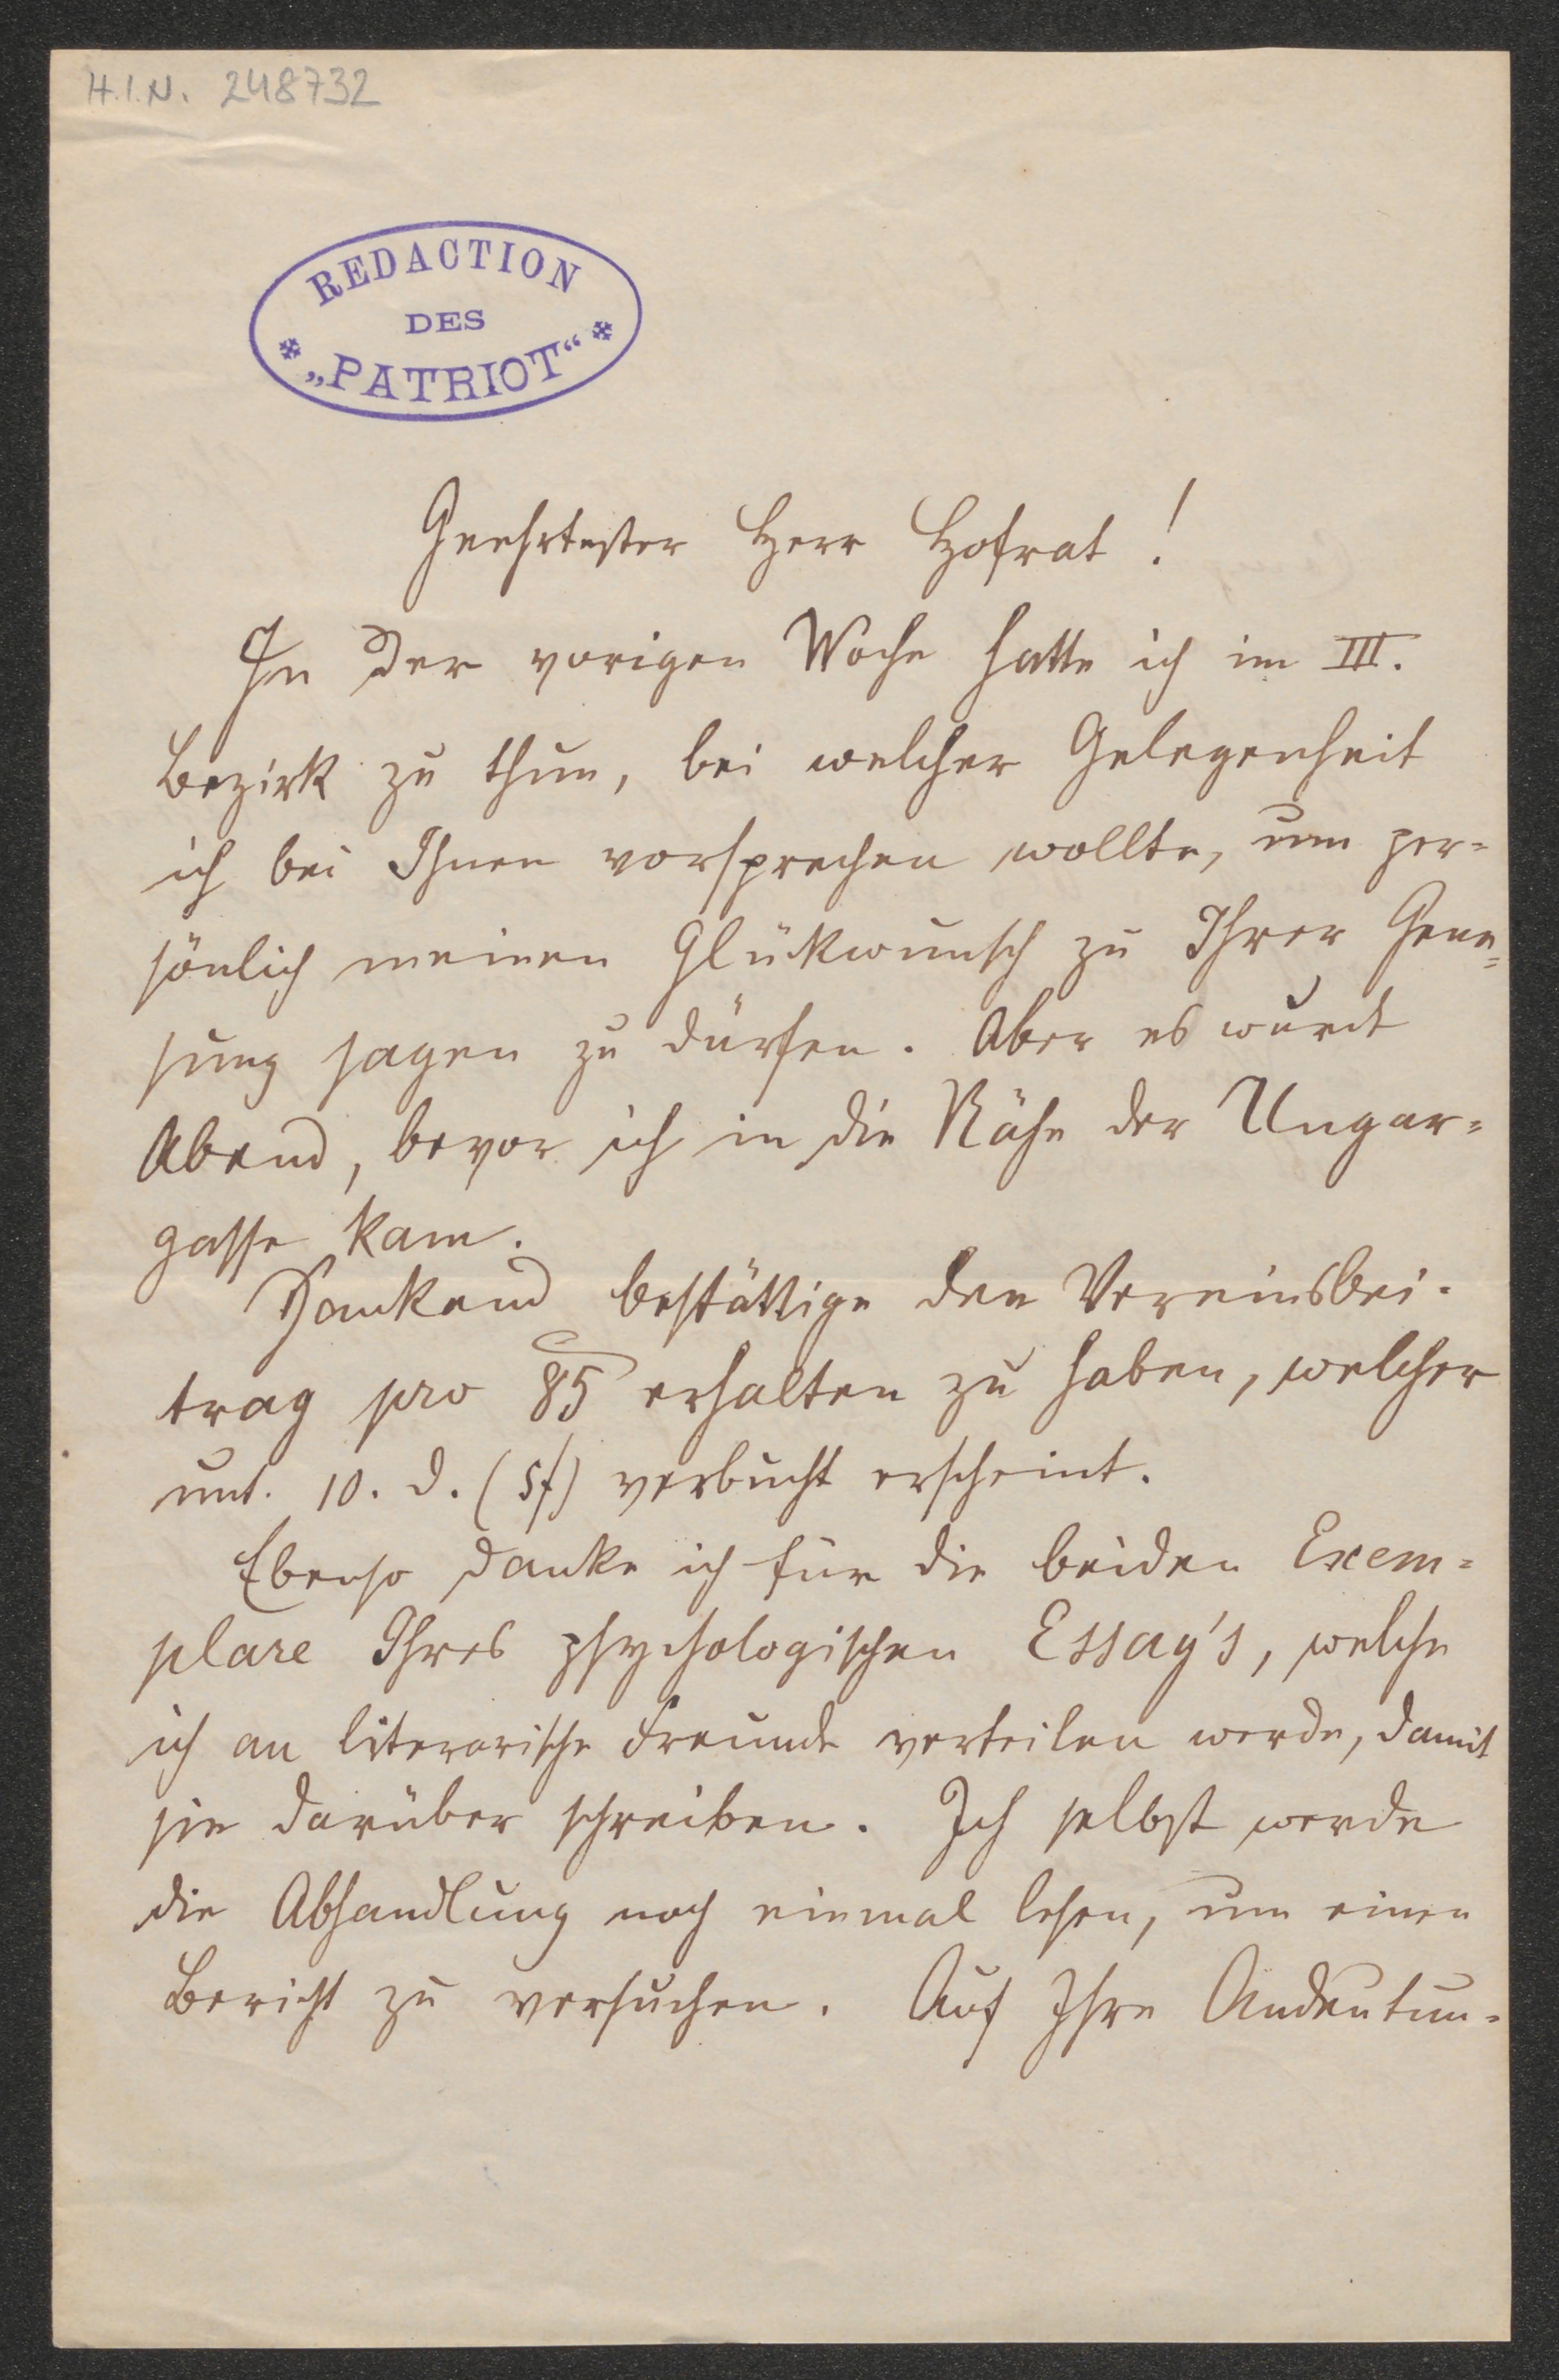 H.I.N. 248732
REDACTION
DES
„PATRIOT“
Geehrtester Herr Hofrat!
In der vorigen Woche hatte ich im III.
Bezirk zu thun, bei welcher Gelegenheit
ich bei Ihnen vorsprechen wollte, um per-
sönlich meinen Glükwunsch zu Ihrer Gene-
sung sagen zu dürfen. Aber es wurde
Abend, bevor ich in die Nähe der Ungar-
gasse kam.
Dankend bestättige den Vereinsbei-
trag pro 85 erhalten zu haben, welcher
unt. 10. d. (5f) verbucht erscheint.
Ebenso danke ich für die beiden Exem-
plare Ihres psychologischen Essay's, welche
ich an literarische Freunde verteilen werde, damit
sie darüber schreiben. Ich selbst werde
die Abhandlung noch einmal lesen, um einen
Bericht zu versuchen. Auf Ihre Andeutun-